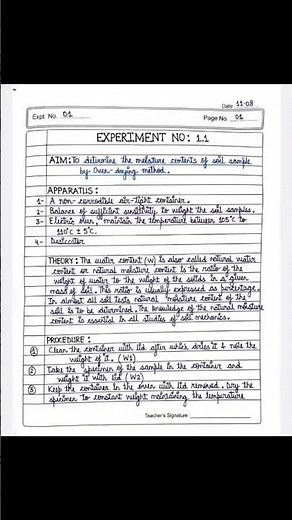 Date 11-08
Expt. No. 01
Page No. 01
EXPERIMENT NO: 1.1
AIM: To determine the moisture contents of soil sample
by Oven-drying method.
APPARATUS:
1- A non-corrodible air-tight container.
2- Balance of sufficient sensitivity to weight the soil samples.
3- Electric oven, maintain the temperature between 105°C to
110°C ± 5°C.
4- Desiccator
THEORY: The water content (w) is also called natural water
content or natural moisture content is the ratio of the
weight of water to the weight of the solids in a given
mass of soil. This ratio is usually expressed as percentage.
In almost all soil tests natural moisture content of the
soil is to be determined. The knowledge of the natural moisture
content is essential in all studies of soil mechanics.
PROCEDURE:
1 Clean the container with lid after which dries it & note the
weight of it. (W1)
2 Take the specimen of the sample in the container and
weight it with lid (W2)
3 Keep the container in the oven with lid removed. Dry the
specimen to constant weight maintaining the temperature
Teacher's Signature